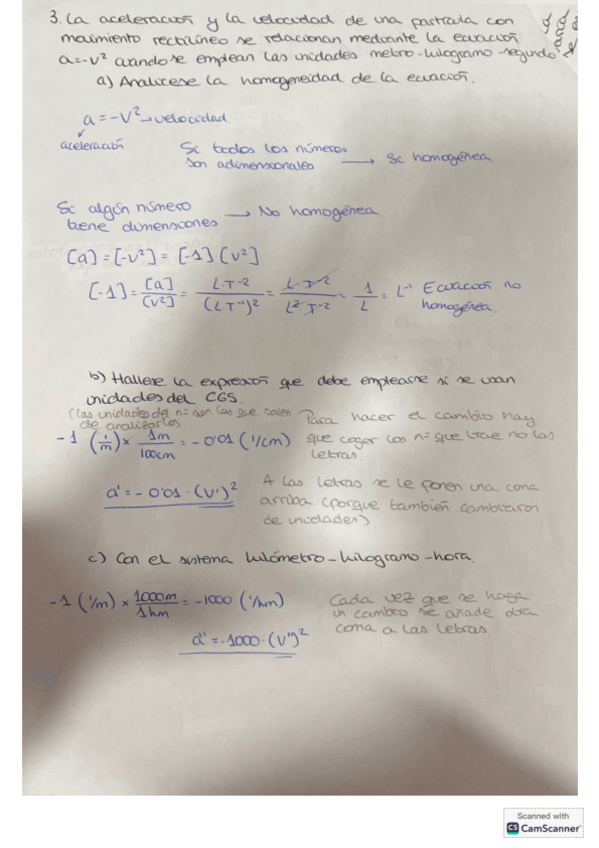 3. La aceleración y la velocidad de una partícula con
movimiento rectilíneo se relacionan mediante la ecuación
a=-v² cuando se emplean las unidades metro-kilogramo-segundo
a) Analícese la homogeneidad de la ecuación.
a = -v² → velocidad
aceleración
Si todos los números
son adimensionales → Sí homogénea
Si algún número
tiene dimensiones → No homogénea
[a] = [-v²] = [-1] [v²]
[-1] = [a]/[v²] = LT⁻²/(LT⁻¹)² = L T⁻²/L² T⁻² = 1/L = L⁻¹ Ecuación no
homogénea.
b) Hállese la expresión que debe emplearse si se usan
unidades del CGS.
(las unidades del nº son las que salen
de analizarlos
Para hacer el cambio hay
que coger los nº que trae no las
letras.
-1 (1/m) × 1m/100cm = -0'01 (1/cm)
a' = -0'01 · (v')²
A las letras se le ponen una coma
arriba (porque también cambiaron
de unidades)
c) Con el sistema kilómetro-kilogramo-hora.
-1 (1/m) × 1000m/1km = -1000 (1/km)
a' = -1000 · (v')²
Cada vez que se haga
un cambio se añade otra
coma a las letras
Scanned with
CS CamScanner